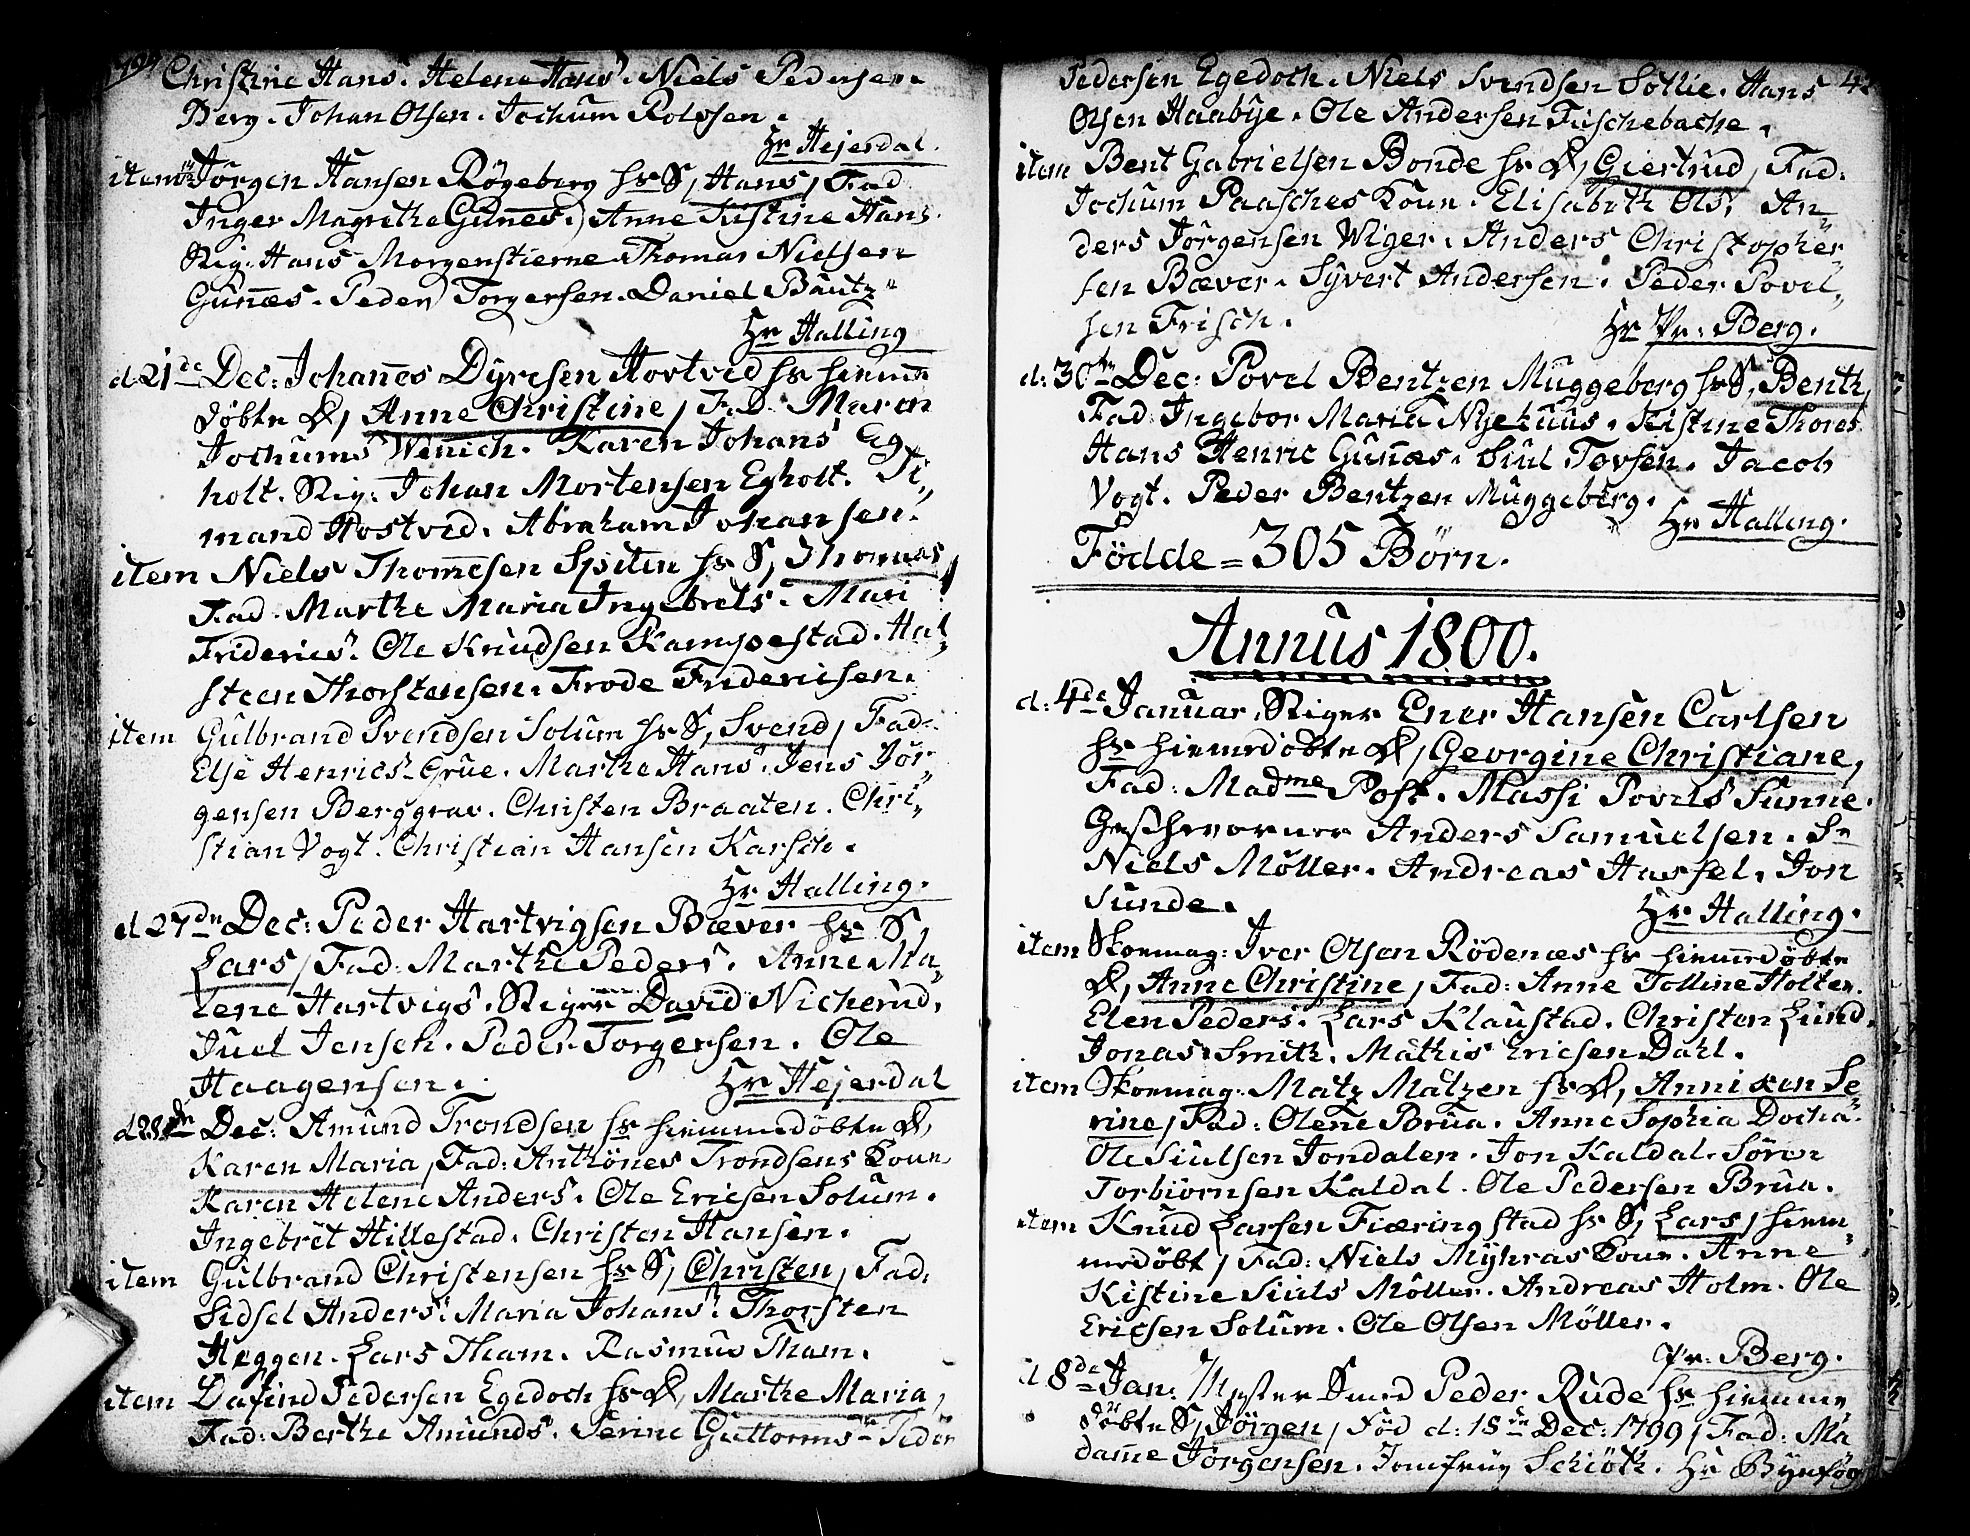 Christine Hans. Helene Hans. Niels Pedersen
Berg. Johan Olsen. Jochum Rolvsen.
Hr Hejerdal.
item Jörgen Hansen Rögeberg hs S, Hans, Fad
Inger Magrethe Gunnes. Anne Kistine Hans.
Rig. Hans Morgenstierne Thomas Nielsen
Gunnæs. Peder Torgersen. Daniel Bautz
Hr Halling
d 21de Dec: Johannes Dyresen Hortved hs hiemme
döbte D, Anne Christine, Fad Maren
Jochums Wenich. Karen Johans Eg,,
holt. Rig: Johan Mortensen Egholt. Ti,,
mand Hostved. Abraham Johansen.
item Niels Thomesen Spiten hs S, Thomas,
Fad. Marthe Maria Ingebrets. Mari
Friderics. Ole Knudsen Kampestad. Hal,,
steen Thorstensen. Frode Fridericsen.
item Gulbrand Svendsen Solum hs S, Svend, Fad.
Else Henrics Grue. Marthe Hans. Jens Jör,,
gensen Berggrav. Christen Braaten. Chri,,
stian Vogt. Christian Hansen Karsch.
Hr Halling.
d 27de Dec: Peder Hartvigsen Bæver hs S,
Lars, Fad: Marthe Peders. Anne Ma,,
lene Hartvigs. Rig David Nicherud,
Juel Jensen. Peder Torgersen. Ole
Haagensen.
Hr Hejerdal
d 28de Dec: Amund Trondsen hs hiemmedöbte D,
Karen Maria, Fad: Anthönes Trondsens Kone
Karen Helene Anders. Ole Ericsen Solum.
Ingebret Hillestad. Christen Hansen.
item Gulbrand Christensen hs S, Christen, Fad:
Sidsel Anders. Maria Johans. Thorsten
Heggen. Lars Tham. Rasmus Tham.
item Dafind Pedersen Egedoch hs D, Marthe Maria,
Fad: Berthe Amunds. Serine Guttorms Peder
Pedersen Egedoch. Niels Svendsen Sollie. Hans
Olsen Haabye. Ole Andersen Fischebache.
item Bent Gabrielsen Bonde hs D, Giertrud, Fad:
Jochum Paasches Kone. Elisabeth Ols. An,,
ders Jörgensen Wiger. Anders Christopher,,
sen Bæver. Syvert Andersen. Peder Povel,,
sen Frisch.
Hr Pr: Berg.
d: 30te Dec: Povel Bentzen Muggeberg hs S, Benth,
Fad: Ingebor Maria Nyehuus. Kistine Thores
Hans Henric Gunnæs. Siul Torsen. Jacob
Vogt. Peder Bentzen Muggeberg.
Hr Halling.
Födde = 305 Börn.
Annus 1800.
d: 4de Januar, Riger Ener Hansen Carlsen
hs hiemedöbte D, Georgine Christiane,
Fad: Madme Post. Massi Povels Sunne.
Geschworner Anders Samuelsen. Sr
Niels Möller. Andreas Hassel. Jon
Sunde.
Hr Halling.
item Skomag: Iver Olsen Rödenæs hs hiemmedöbte
D, Anne Christine, Fad: Anne Tolline Holter.
Elen Peders. Lars Klaustad. Christen Lund.
Jonas Smith. Mathis Ericsen Dahl.
item Skomag: Matz Matzen hs D, Annixen Se
rine, Fad: Olene Brua. Anne Sophia Docha.
Ole Siulsen Jondalen. Jon Kaldal. Sören
Torbiörnsen Kaldal. Ole Pedersen Brua.
item Knud Larsen Fiæringstad hs S, Lars, hiem,,
medöbt, Fad: Niels Myhras Kone. Anne
Kistine Siuls Möller. Andreas Holm. Ole
Ericsen Solum. Ole Olsen Möller.
Pr: Berg.
d 8de Jan: Mester Smed Peder Rude hs hiemme,,
döbte S, Jörgen, Föd d: 18de Dec: 1799, Fad: Ma
dame Jörgensen. Jomfrue Schiöth. Hr